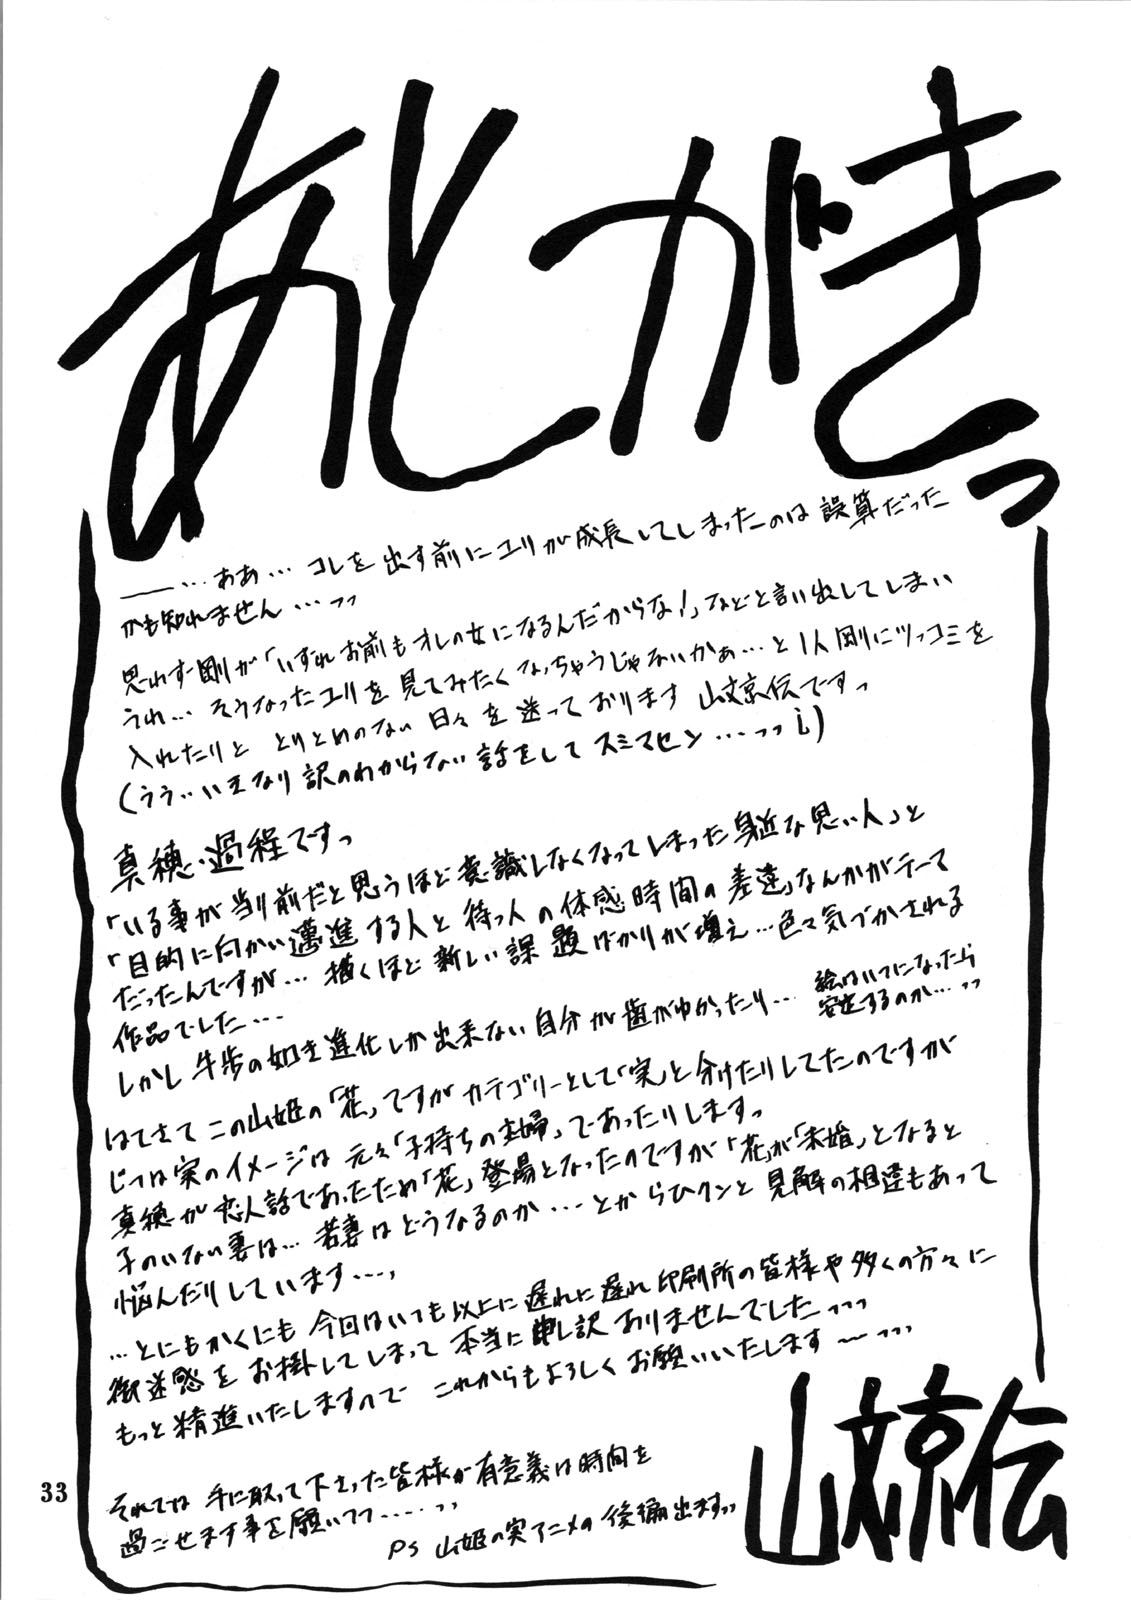 あとがきっ
――…ああ… コレを出す前にユリが成長してしまったのは誤算だった
かも知れません…ッッ
思わず剛が「いずれお前もオレの女になるんだからな!」などと言い出してしまい
うれ… そうなったユリを見てみたくなっちゃうじゃないかぁ…と1人剛にツッコミを
入れたりと とりとめのない日々を送っております 山文京伝ですっ
(うう…いきなり訳のわからない話をしてスミマセン…ッッ¡)
真穂・過程ですっ
「いる事が当り前だと思うほど意識しなくなってしまった身近な思い人」と
「目的に向かい邁進する人と待つ人の体感時間の差違」なんかがテーマ
だったんですが… 描くほど新しい課題ばかりが増え…色々気づかされる
作品でした…
しかし牛歩の如き進化しか出来ない自分が歯がゆかったり…
絵はいつになったら
安定するのか…ッッ
はてさてこの山姫の「花」ですがカテゴリーとして「実」と分けたりしてたのですが
じつは実のイメージは元々「子持ちの主婦」であったりしますっ
真穂が恋人話であったため「花」登場となったのですが「花」が「未婚」となると
子のいない妻は… 若妻はどうなるのか…とからひクンと見解の相違もあって
悩んだりしています…、
…ともかくにも今回はいつも以上に遅れに遅れ印刷所の皆様や多くの方々に
御迷惑をお掛してしまって本当に申し訳ありませんでした…ッッ
もっと精進いたしますので これからもよろしくお願いいたします〜…ッッ
それでは 手に取って下さった皆様が有意義な時間を
過ごせます事を願いつつ……ッッ
PS 山姫の実アニメの後編出ますッッ
山文京伝
33